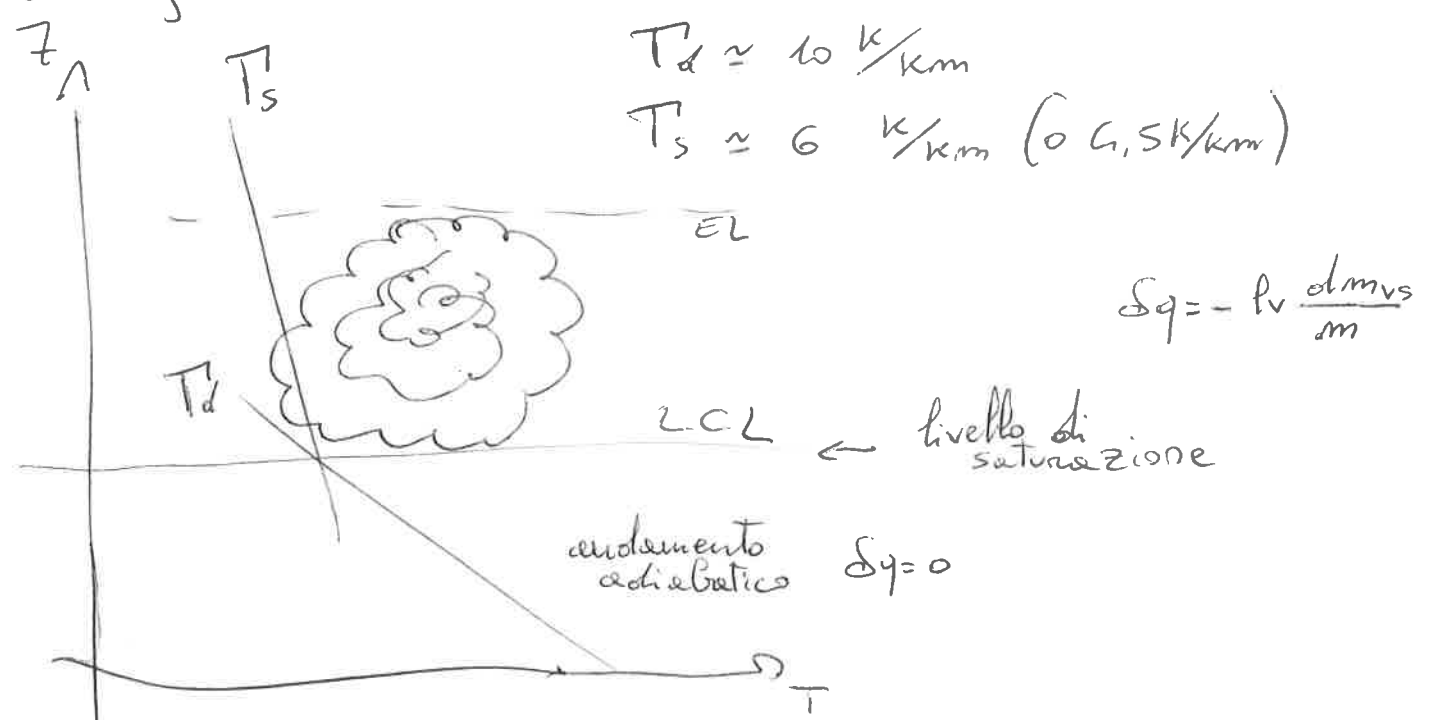 z
Γs
Γd ≃ 10 K/Km
Γs ≃ 6 K/Km (o 6,5K/Km)
EL
δq = - lv dmvs/m
Γd
L.C.L ← livello di
saturazione
andamento
adiabatico δq=0
T